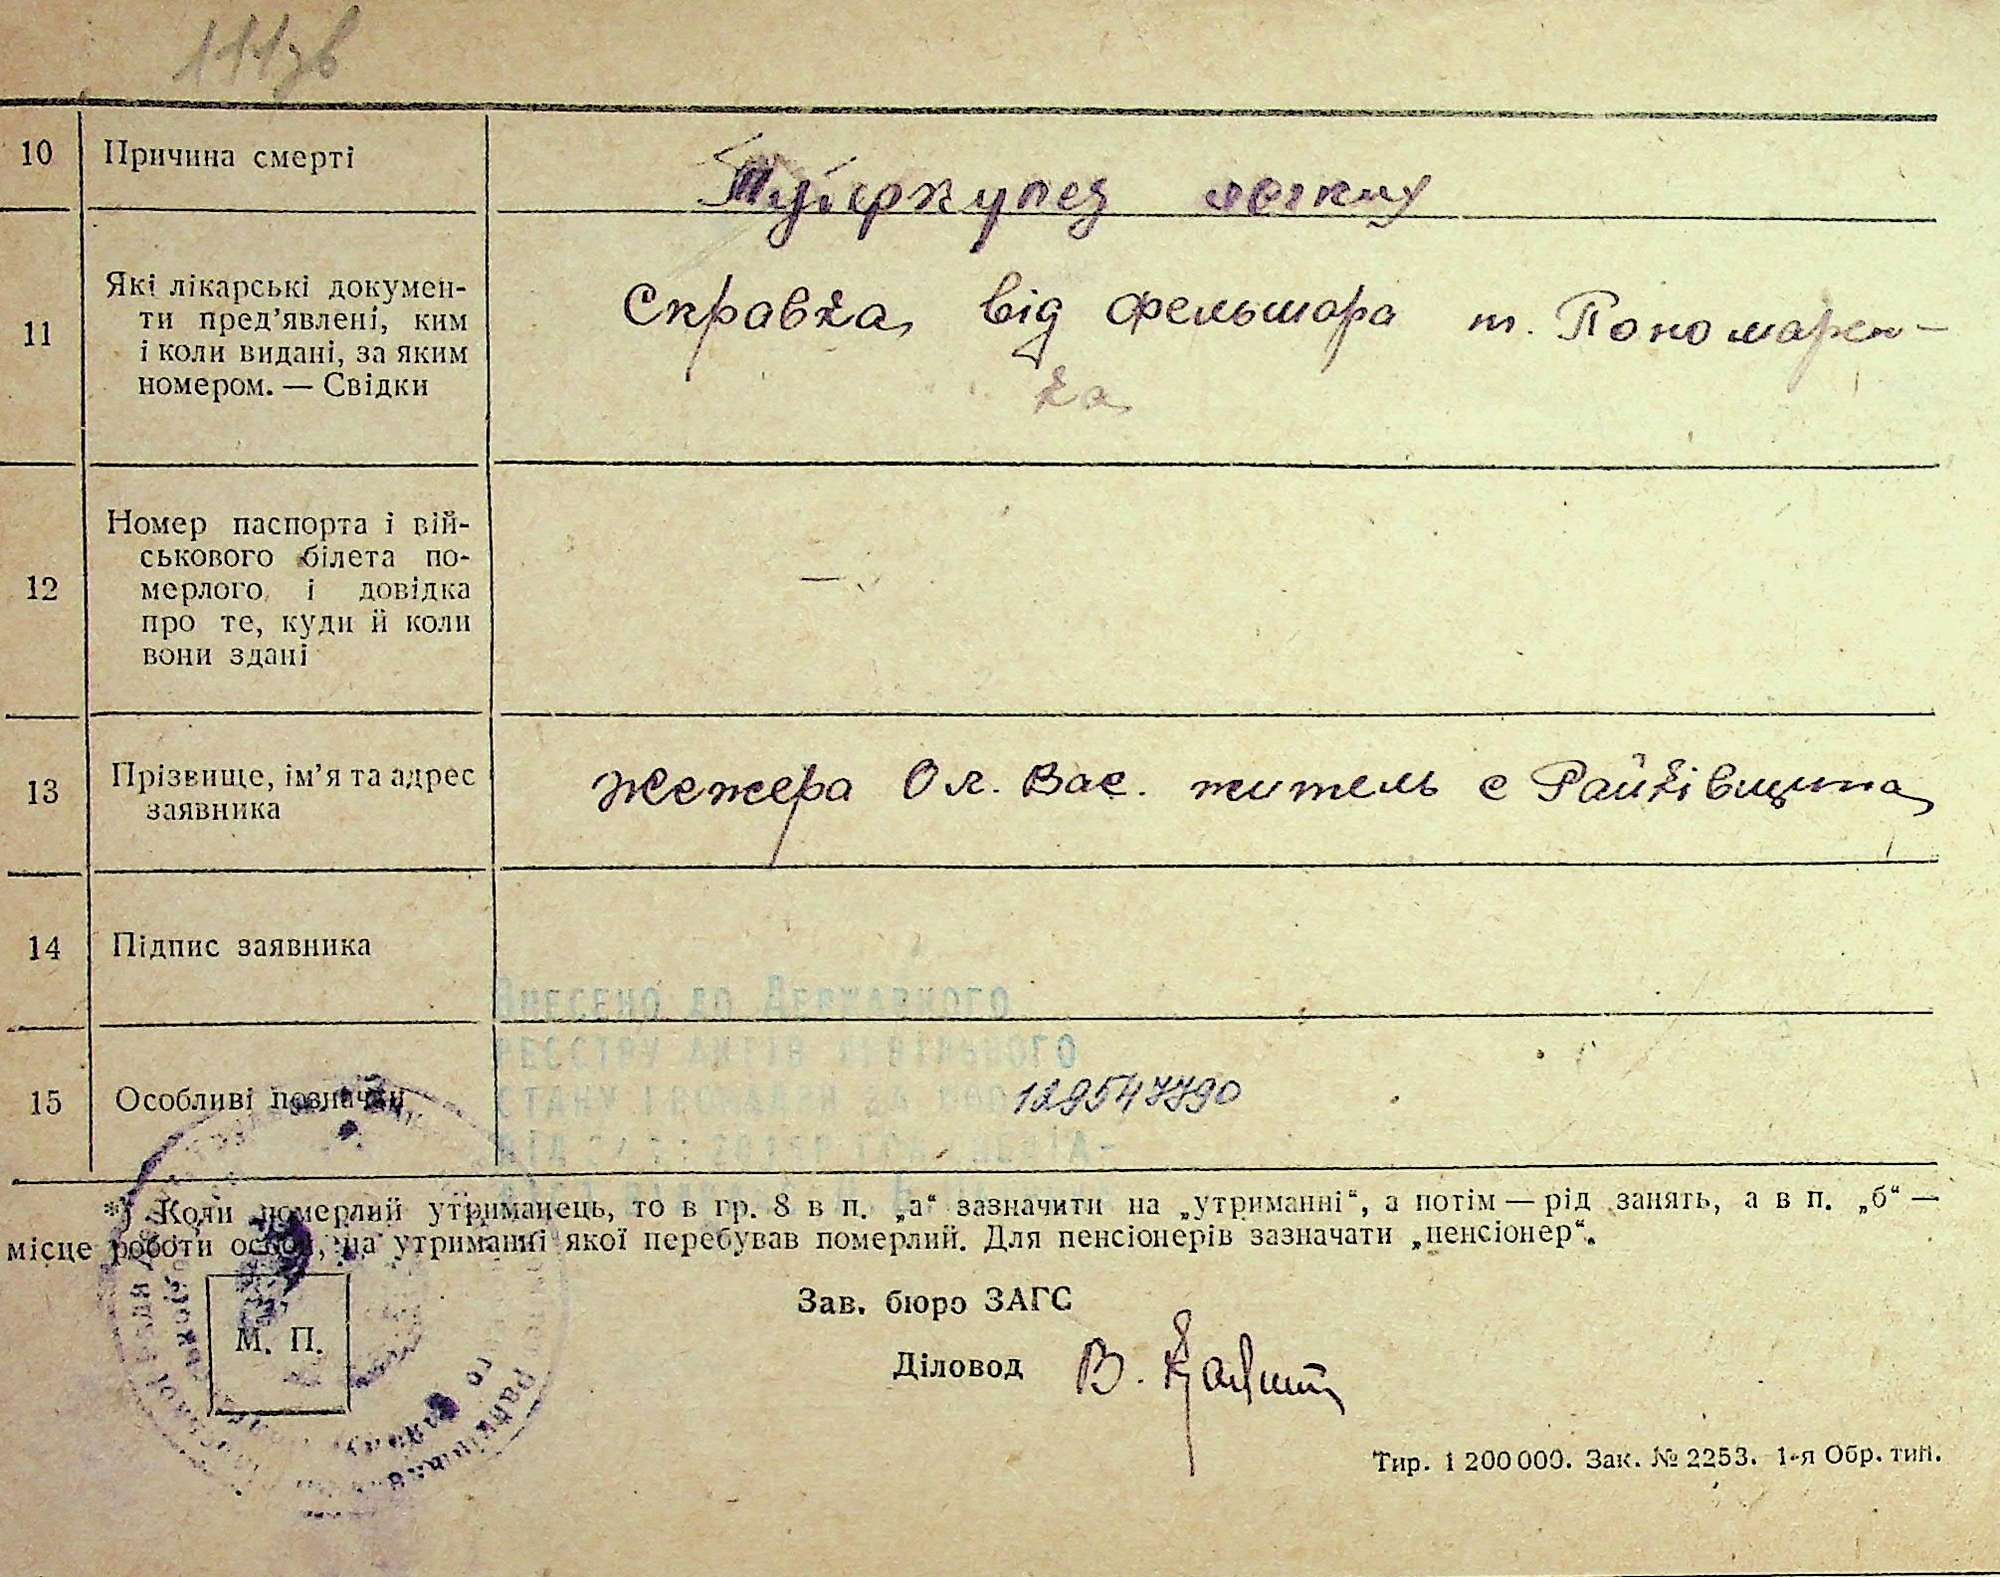 111зв
10 Причина смерті Туберкулез легких
11 Які лікарські докумен-
ти пред'явлені, ким
і коли видані, за яким
номером. — Свідки
Справка від фельшора т. Пономарен-
ка
12 Номер паспорта і вій-
ськового білета по-
мерлого і довідка
про те, куди й коли
вони здані
—
13 Прізвище, ім'я та адрес
заявника
Жежера Ол. Вас. житель с Райківщина
14 Підпис заявника
Внесено до Державного
реєстру актів цивільного
15 Особливі позначки
стану громадян за
129547790
від
*) Коли померлий утриманець, то в гр. 8 в п. „а“ зазначити на „утриманні“, а потім — рід занять, а в п. „б“ —
місце роботи особи, на утриманні якої перебував померлий. Для пенсіонерів зазначати „пенсіонер“.
Зав. бюро ЗАГС
М. П.
Діловод В.
Тир. 1 200 000. Зак. № 2253. 1-я Обр. тип.